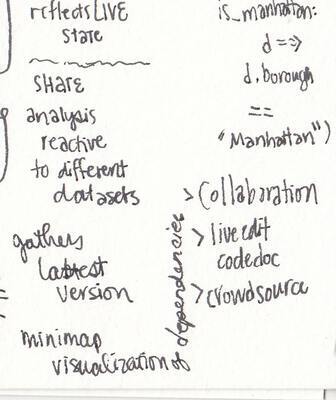 reflects LIVE
state
SHARE
analysis
reactive
to different
datasets
gathers
latest
version
minimap
visualization of
dependencies
is_manhattan:
d =>
d.borough
==
"Manhattan")
> Collaboration
> live edit
codedoc
> crowdsource